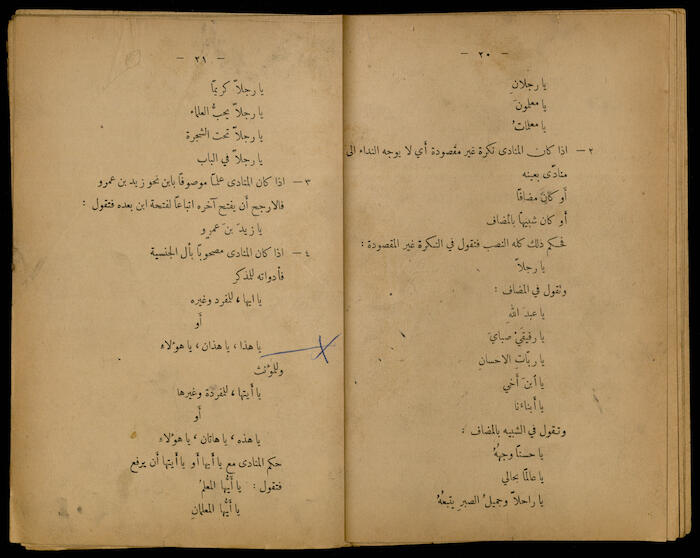 — ٢٠ —
يا رجلانِ
يا معلمونَ
يا معلماتُ
٢ — اذا كان المنادى نكرة غير مقصودة أي لا يوجه النداء الى
منادًى بعينه
أو كان مضافًا
أو كان شبيهًا بالمضاف
فحكم ذلك كله النصب فتقول في النكرة غير المقصودة :
يا رجلاً
وتقول في المضاف :
يا عبدَ اللهِ
يا رفيقَيْ صبايَ
يا ربّاتِ الاحسانِ
يا ابنَ أخي
يا أبناءَنا
وتقول في الشبيه بالمضاف :
يا حسنًا وجههُ
يا عالمًا بحالي
يا راحلاً وجميلُ الصبرِ يتبعُهُ
— ٢١ —
يا رجلاً كريمًا
يا رجلاً يحبُّ العلماء
يا رجلاً تحت الشجرة
يا رجلاً في الباب
٣ — اذا كان المنادى علمًا موصوفًا بابن نحو زيد بن عمرو
فالارجح أن يفتح آخره اتباعًا لفتحة ابن بعده فتقول :
يا زيدَ بنَ عمرٍو
٤ — اذا كان المنادى مصحوبًا بأل الجنسية
فأدواته للمذكر
يا ايها ، للمفرد وغيره
أو
يا هذا ، يا هذان ، يا هؤلاء
وللمؤنث
يا أيتها ، للمفردة وغيرها
أو
يا هذه ، يا هاتان ، يا هؤلاء
حكم المنادى مع يا أيها أو يا أيتها أن يرفع
فتقول : يا أيُّها المعلمُ
يا أيُّها المعلمانِ